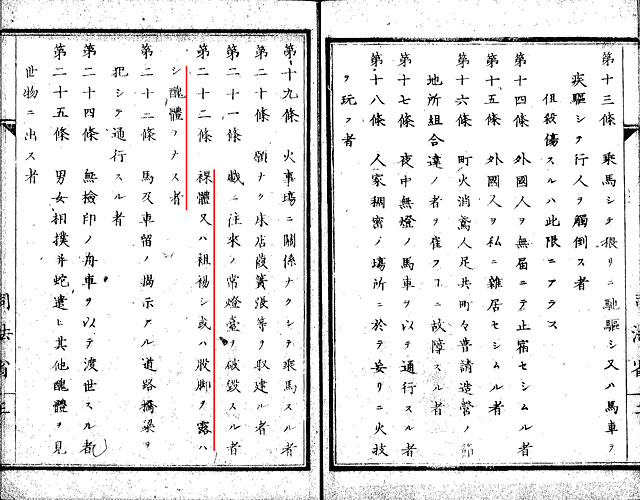 第十三條 乘馬シテ猥リニ馳驅シ又ハ馬車ヲ
疾驅シテ行人ヲ觸倒ス者
但殺傷スルハ此限ニアラス
第十四條 外國人ヲ無届ニテ止宿セシムル者
第十五條 外國人ヲ私ニ雜居セシムル者
第十六條 町火消鳶人足共町々普請造營ノ節
地所組合違ノ者ヲ雇フ┐ニ故障スル者
第十七條 夜中無燈ノ馬車ヲ以テ通行スル者
第十八條 人家稠密ノ塲所ニ於テ妄リニ火技
ヲ玩フ者
第十九條 火事塲ニ關係ナクシテ乘馬スル者
第二十條 願ナク床店葭簀張等ヲ取建ル者
第二十一條 戯ニ往來ノ常燈臺ヲ破毀スル者
第二十二條 裸體又ハ袒裼シ或ハ股脚ヲ露ハ
シ醜體ヲナス者
第二十三條 馬及車留ノ掲示アル道路橋梁ヲ
犯シテ通行スル者
第二十四條 無檢印ノ舟車ヲ以テ渡世スル者
第二十五條 男女相撲并蛇遣ヒ其他醜體ヲ見
世物ニ出ス者
司法省